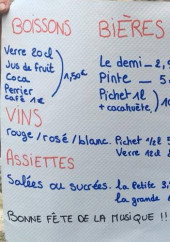 BOISSONS
Verre 20cl
Jus de fruit
Coca
Perrier
1,50€
café 1€
BIÈRES
Le demi
Pinte
Pichet 1l
+ cacahuète
VINS
rouge/rosé/blanc. Pichet 1/2l
Verre 12cl
ASSIETTES
Salées ou sucrées. la Petite
la grande
BONNE FÊTE DE LA MUSIQUE !!